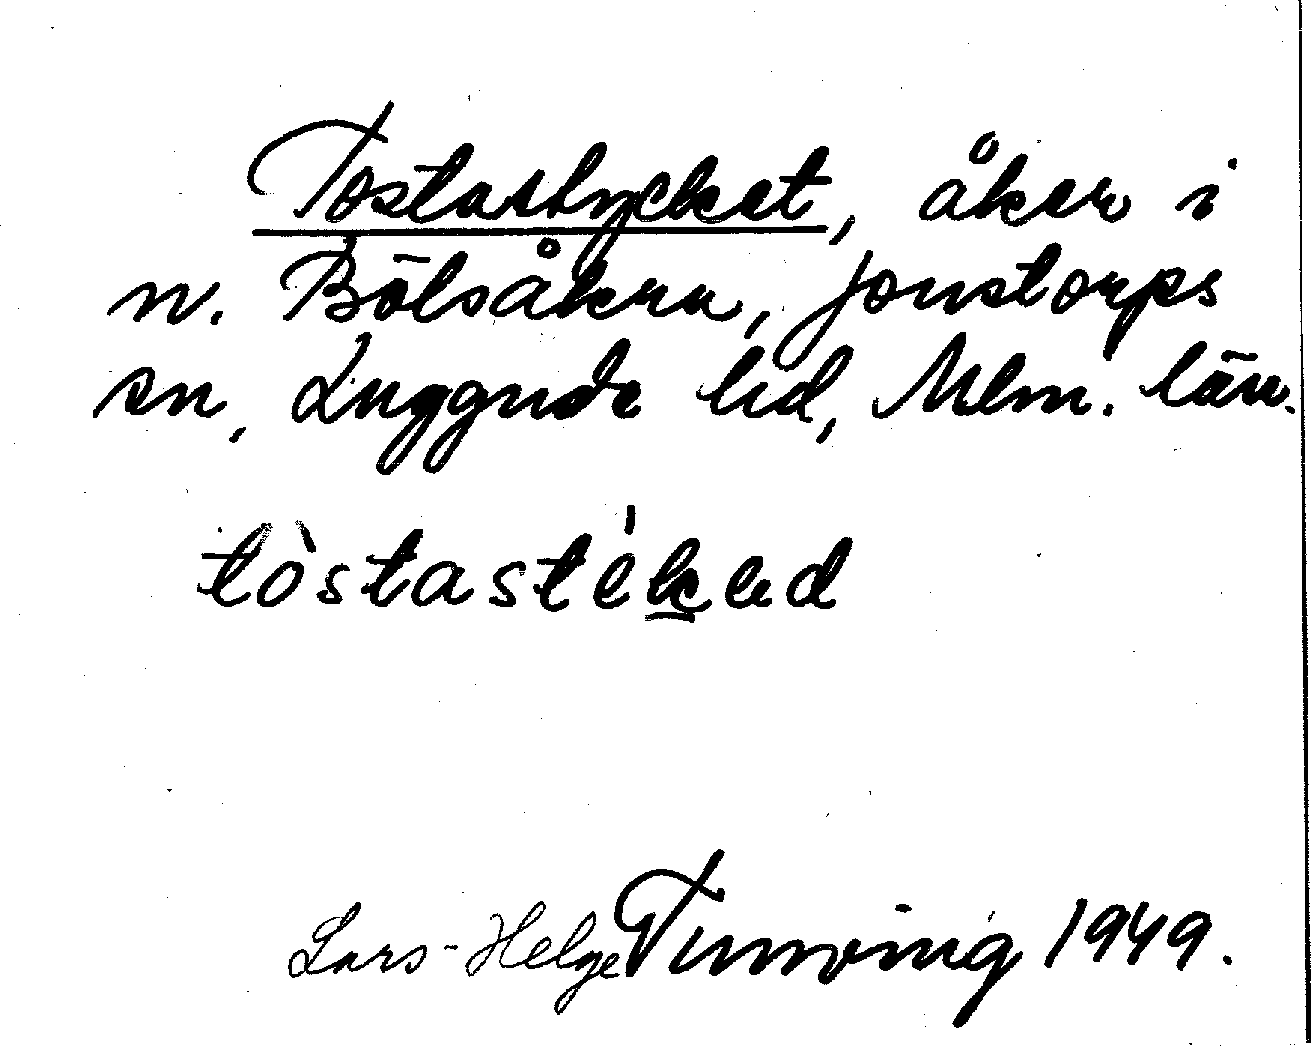 Tostastycket, åker i
n. Bölsåkra, Jonstorps
sn, Luggude hd, Mlm. län.
tòstastéked
Lars-Helge Tunving 1949.